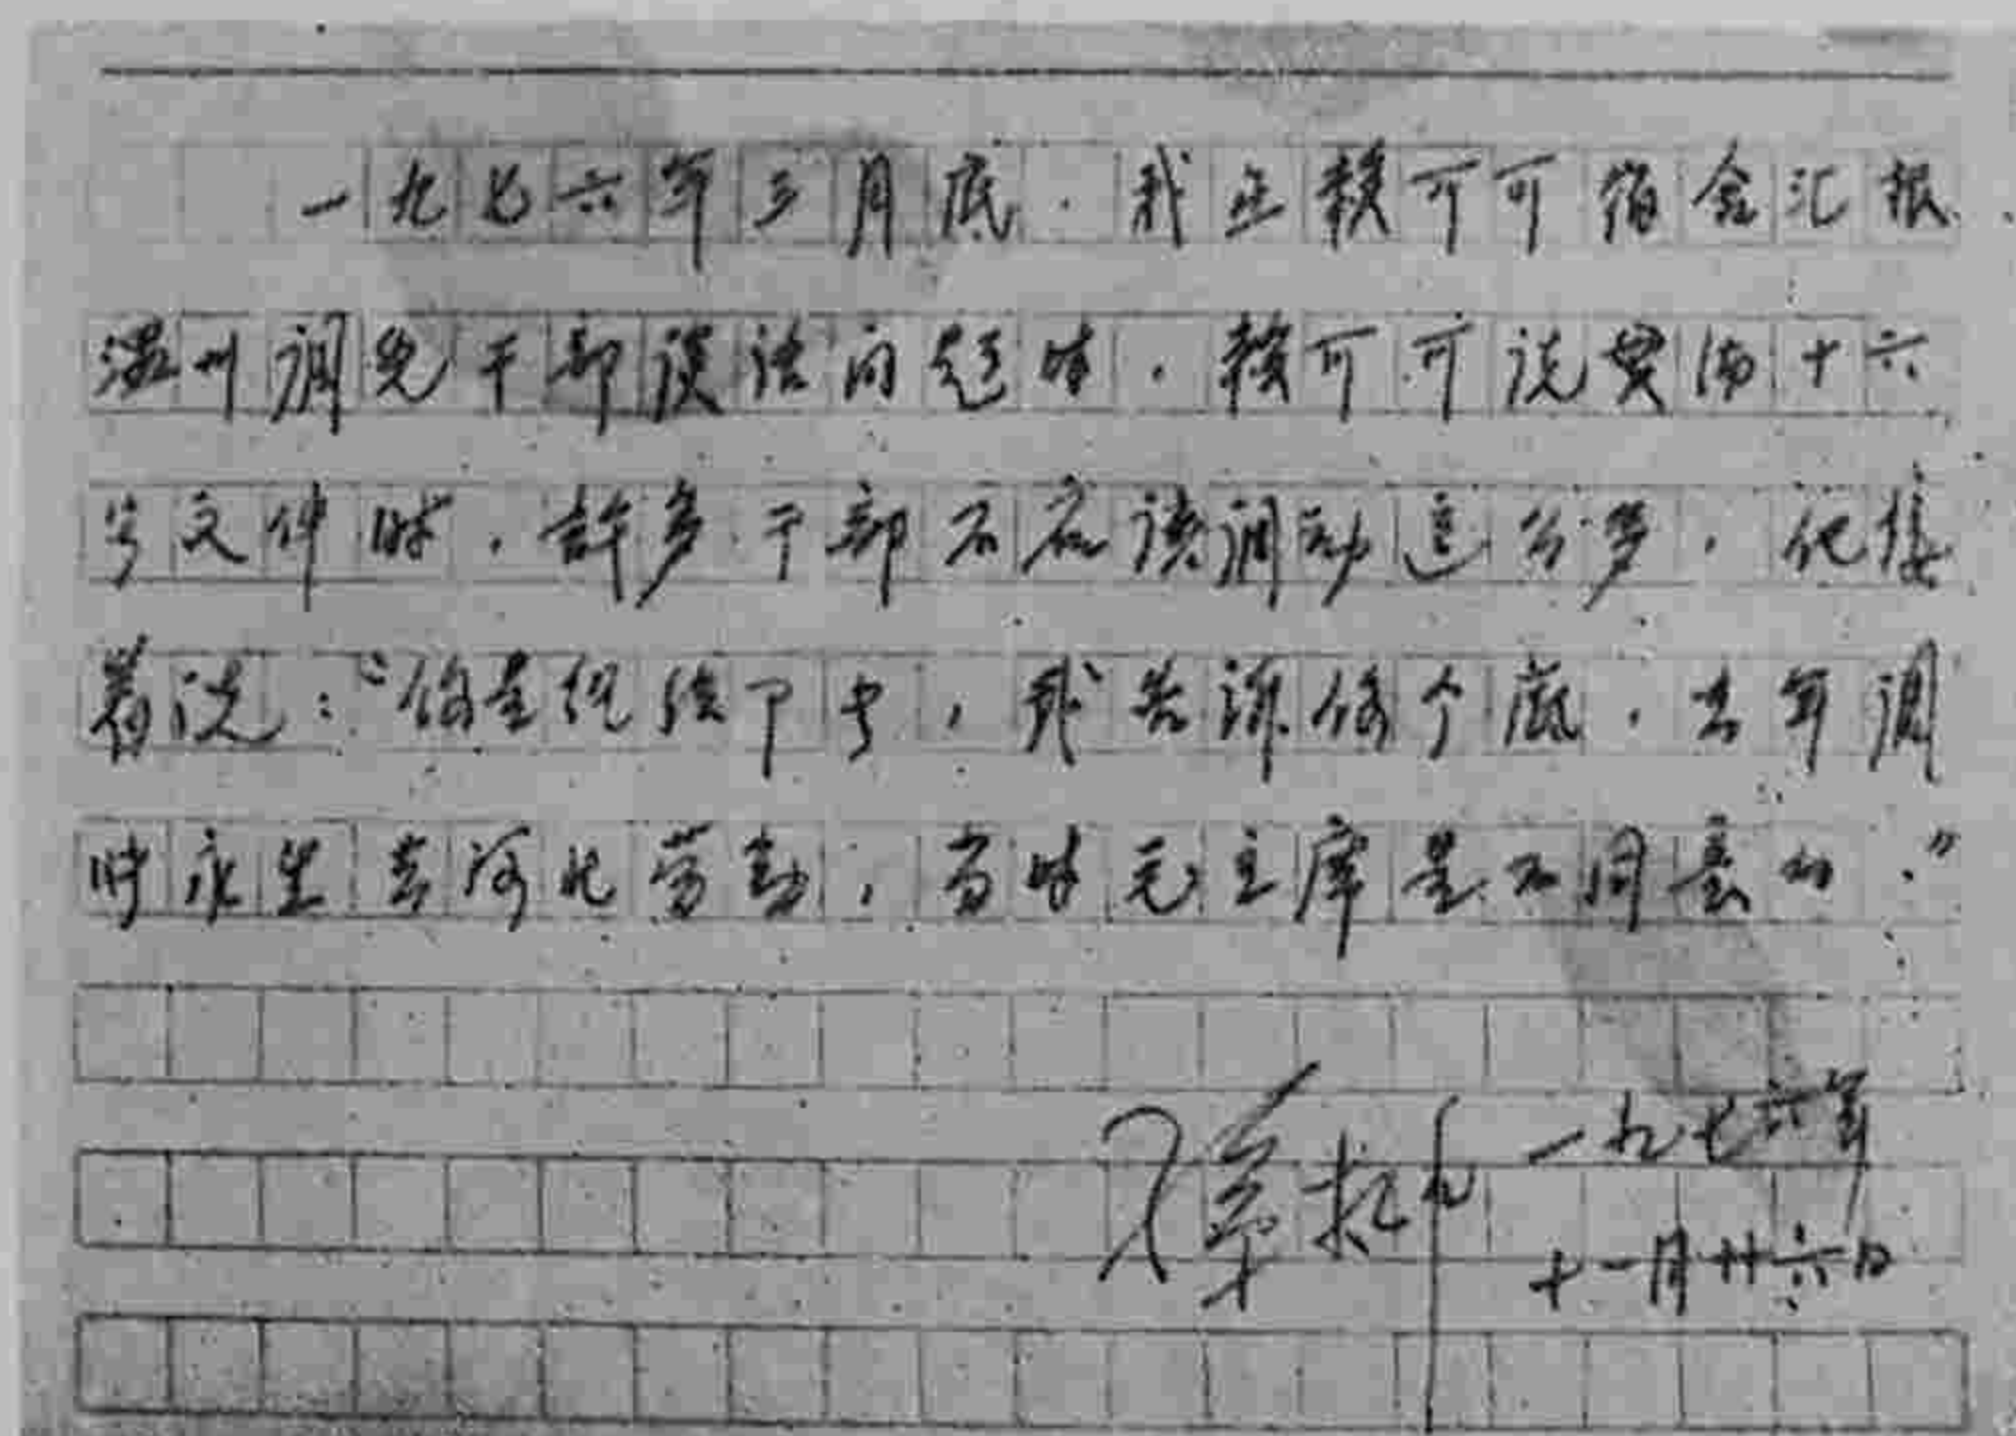 一九七六年三月底.我在赖可可宿舍汇报.
温州调整干部谈话问题时.赖可可说贯彻十六
号文件时.许多干部不应该调动这么多.他接
着说:"你是组织干事,我告诉你个底.去年调
叶永生去河北劳动,当时毛主席是不同意的."
一九七六年
十一月廿六日